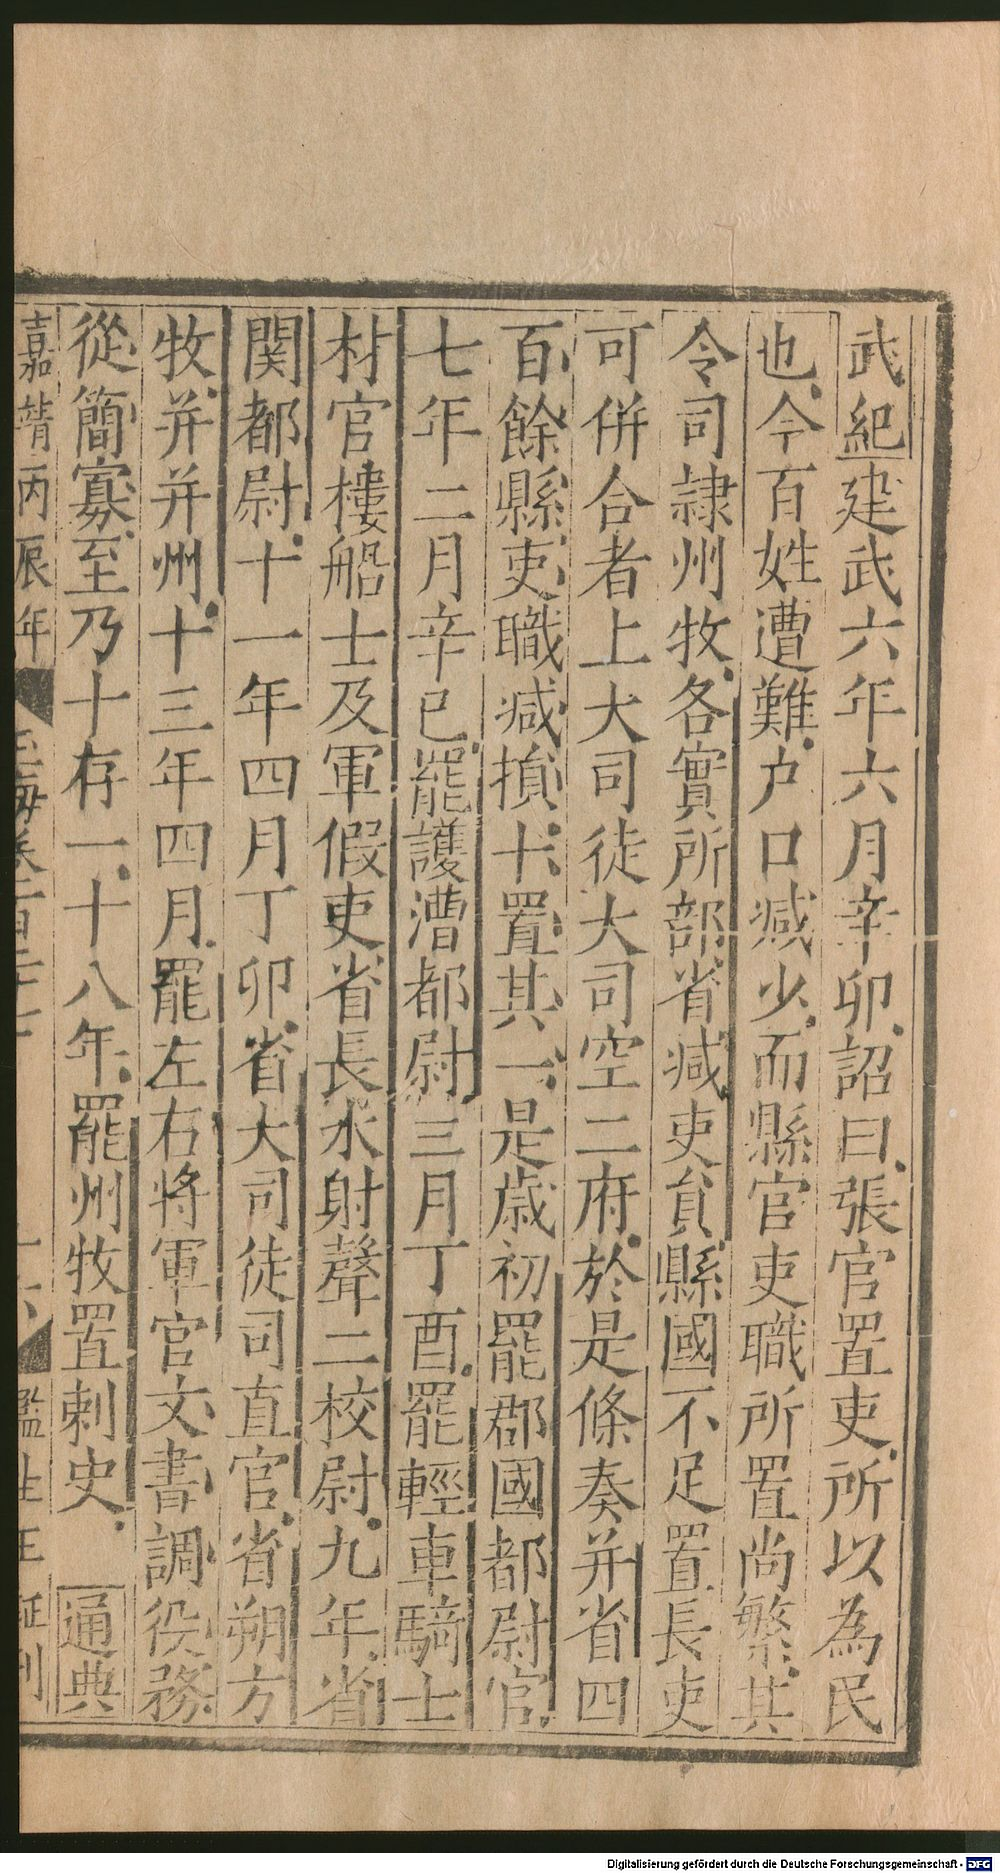 武紀建武六年六月辛卯詔曰張官置吏所以為民
也今百姓遭難户口减少而縣官吏職所置尚繁其
令司隷州牧各實所部省减吏員縣國不足置長吏
可併合者上大司徒大司空二府於是條奏并省四
百餘縣吏職减損十置其一是歲初罷郡國都尉官
七年二月辛巳罷護漕都尉三月丁酉罷輕車騎士
材官樓船士及軍假吏省長水射聲二校尉九年省
関都尉十一年四月丁卯省大司徒司直官省朔方
牧并并州十三年四月罷左右將軍官文書調役務
從簡寡至乃十存一十八年罷州牧置刺史 通典
嘉靖丙辰年 玉海卷一百二十 十六 監生王
Digitalisierung gefördert durch die Deutsche Forschungsgemeinschaft - DFG